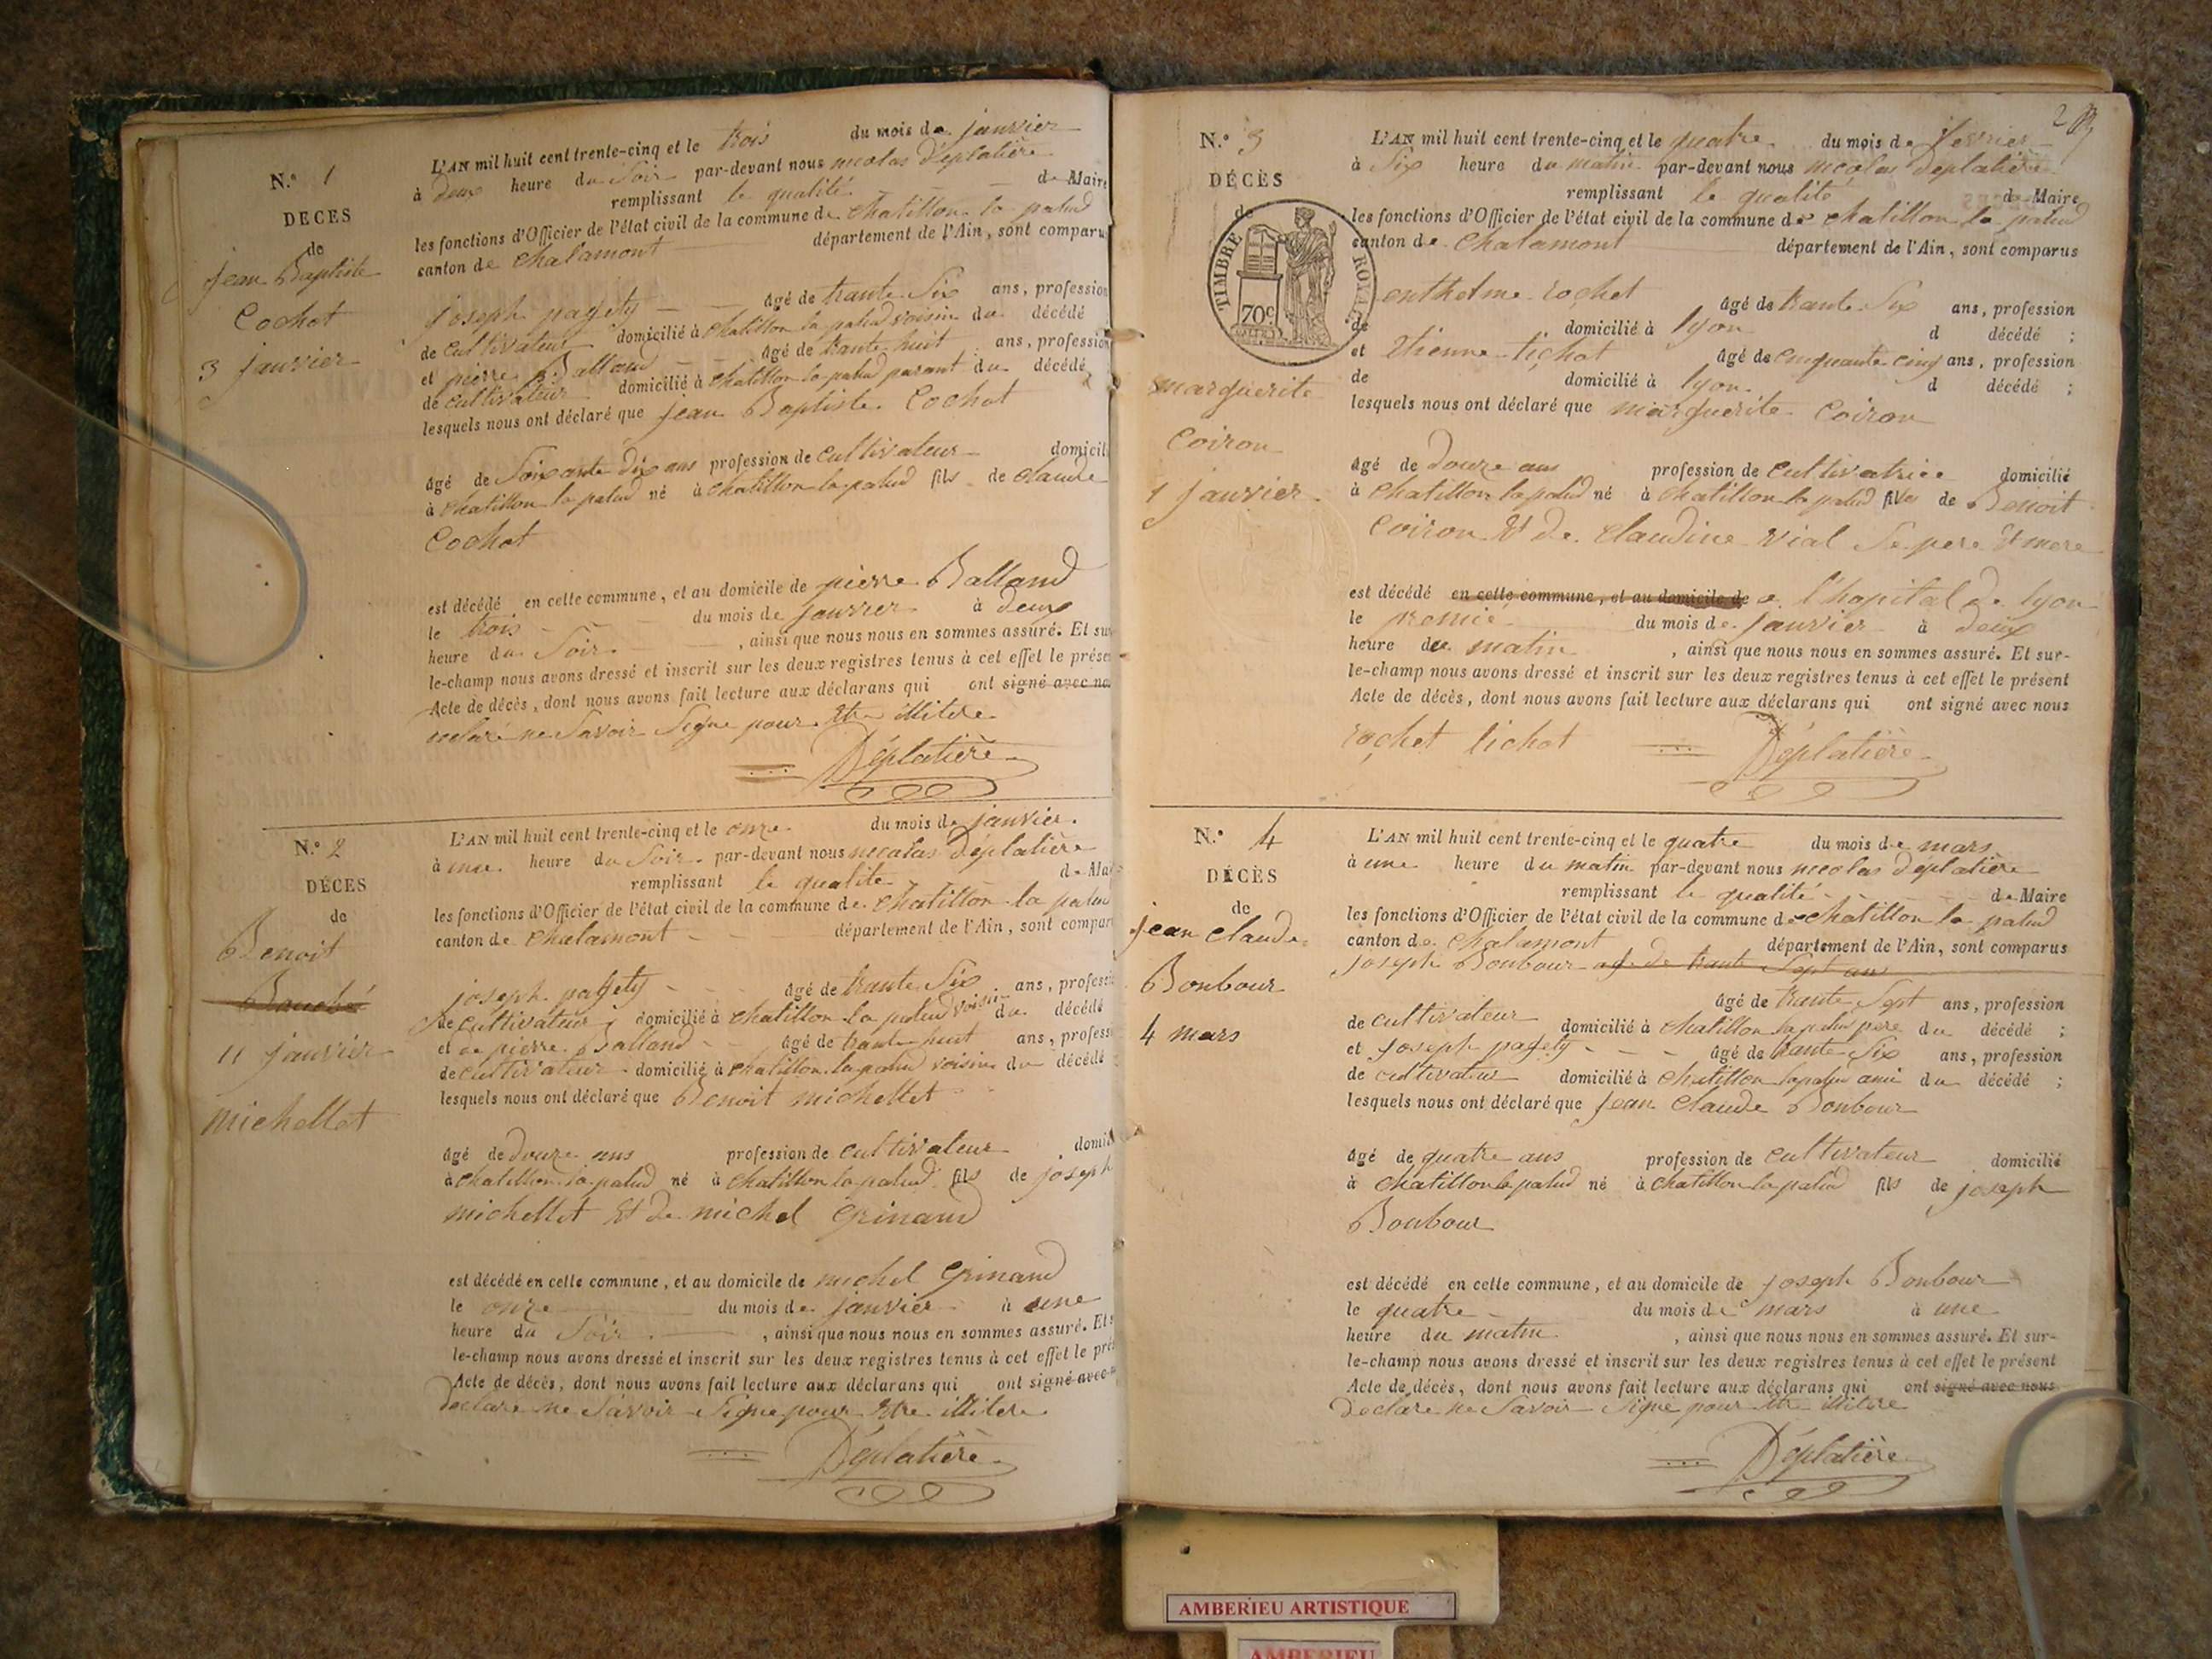 N.° 1
DÉCÈS
de
jean Baptiste
Cochet
3 janvier
L'AN mil huit cent trente-cinq et le trois du mois de janvier
à deux heure du Soir par-devant nous nicolas Déplatière
remplissant la qualité de Maire
les fonctions d'Officier de l'état civil de la commune de chatillon la palud
canton de chalamont département de l'Ain, sont comparus
joseph pagety âgé de trante Six ans, profession
de cultivateur domicilié à chatillon la palud voisin du décédé
et pierre Balland âgé de trante huit ans, profession
de cultivateur domicilié à chatillon la palud parant du décédé
lesquels nous ont déclaré que jean Baptiste Cochet
âgé de Soixante dix ans profession de cultivateur domicil
à chatillon la palud né à chatillon la palud fils de claude
Cochet
est décédé en cette commune, et au domicile de pierre Balland
le trois du mois de janvier à deux
heure du Soir, ainsi que nous nous en sommes assuré. Et sur
le-champ nous avons dressé et inscrit sur les deux registres tenus à cet effet le prése
Acte de décès, dont nous avons fait lecture aux déclarans qui ont signé avec no
declaré ne Savoir Signe pour Etre illitere
Déplatière
N.° 2
DÉCES
de
Benoit
11 janvier
michellet
L'AN mil huit cent trente-cinq et le onze du mois de janvier
à une heure du Soir par-devant nous nicolas Déplatière
remplissant la qualité de Mai
les fonctions d'Officier de l'état civil de la commune de chatillon la palud
canton de chalamont département de l'Ain, sont compar
joseph pagety âgé de trante Six ans, profess
de cultivateur domicilié à chatillon la palud voisin du décédé
et de pierre Balland âgé de trante huit ans, profess
de cultivateur domicilié à chatillon la palud voisin du décédé
lesquels nous ont déclaré que Benoit michellet
âgé de douze ans profession de cultivateur domi
à chatillon la palud né à chatillon la palud fils de joseph
michellet Et de michel Grinand
est décédé en cette commune, et au domicile de michel Grinand
le onze du mois de janvier à une
heure du Soir, ainsi que nous nous en sommes assuré. Et s
le-champ nous avons dressé et inscrit sur les deux registres tenus à cet effet le pré
Acte de décès, dont nous avons fait lecture aux déclarans qui ont signé avec
declare ne Savoir Signe pour Etre illitere
Déplatière
2
N.° 3
DÉCÈS
de
TIMBRE ROYAL
70c
marguerite
Coiron
1 janvier
L'AN mil huit cent trente-cinq et le quatre du mois de fevrier
à Six heure du matin par-devant nous nicolas Deplatière
remplissant la qualité de Maire
les fonctions d'Officier de l'état civil de la commune de chatillon la palud
canton de Chalamont département de l'Ain, sont comparus
enthelme rochet âgé de trante Six ans, profession
de domicilié à lyon d décédé ;
et Etienne tichot âgé de cinquante cinq ans, profession
de domicilié à lyon d décédé ;
lesquels nous ont déclaré que marguerite Coiron
âgé de douze ans profession de cultivatrice domicilié
à chatillon la palud né à chatillon la palud fille de Benoit
Coiron Et de claudine vial Se pere Et mere
est décédé en cette commune, et au domicile de a l'hopital de lyon
le promie du mois de janvier à deux
heure du matin, ainsi que nous nous en sommes assuré. Et sur-
le-champ nous avons dressé et inscrit sur les deux registres tenus à cet effet le présent
Acte de décès, dont nous avons fait lecture aux déclarans qui ont signé avec nous
rochet tichot Déplatière
N.° 4
DÉCÈS
de
jean claude
Bonbour
4 mars
L'AN mil huit cent trente-cinq et le quatre du mois de mars
à une heure du matin par-devant nous nicolas Déplatière
remplissant la qualité de Maire
les fonctions d'Officier de l'état civil de la commune de chatillon la palud
canton de chalamont département de l'Ain, sont comparus
joseph Bonbour age de trante Sept ans
âgé de trante Sept ans, profession
de cultivateur domicilié à chatillon la palud pere du décédé ;
et joseph pagety âgé de trante Six ans, profession
de cultivateur domicilié à chatillon la palud ami du décédé ;
lesquels nous ont déclaré que jean claude Bonbour
âgé de quatre ans profession de cultivateur domicilié
à chatillon la palud né à chatillon la palud fils de joseph
Bonbour
est décédé en cette commune, et au domicile de joseph Bonbour
le quatre du mois de mars à une
heure du matin, ainsi que nous nous en sommes assuré. Et sur-
le-champ nous avons dressé et inscrit sur les deux registres tenus à cet effet le présent
Acte de décès, dont nous avons fait lecture aux déclarans qui ont signé avec nous
Declare ne Savoir Signe pour Etre illitere
Déplatière
AMBERIEU ARTISTIQUE
AMBERIEU